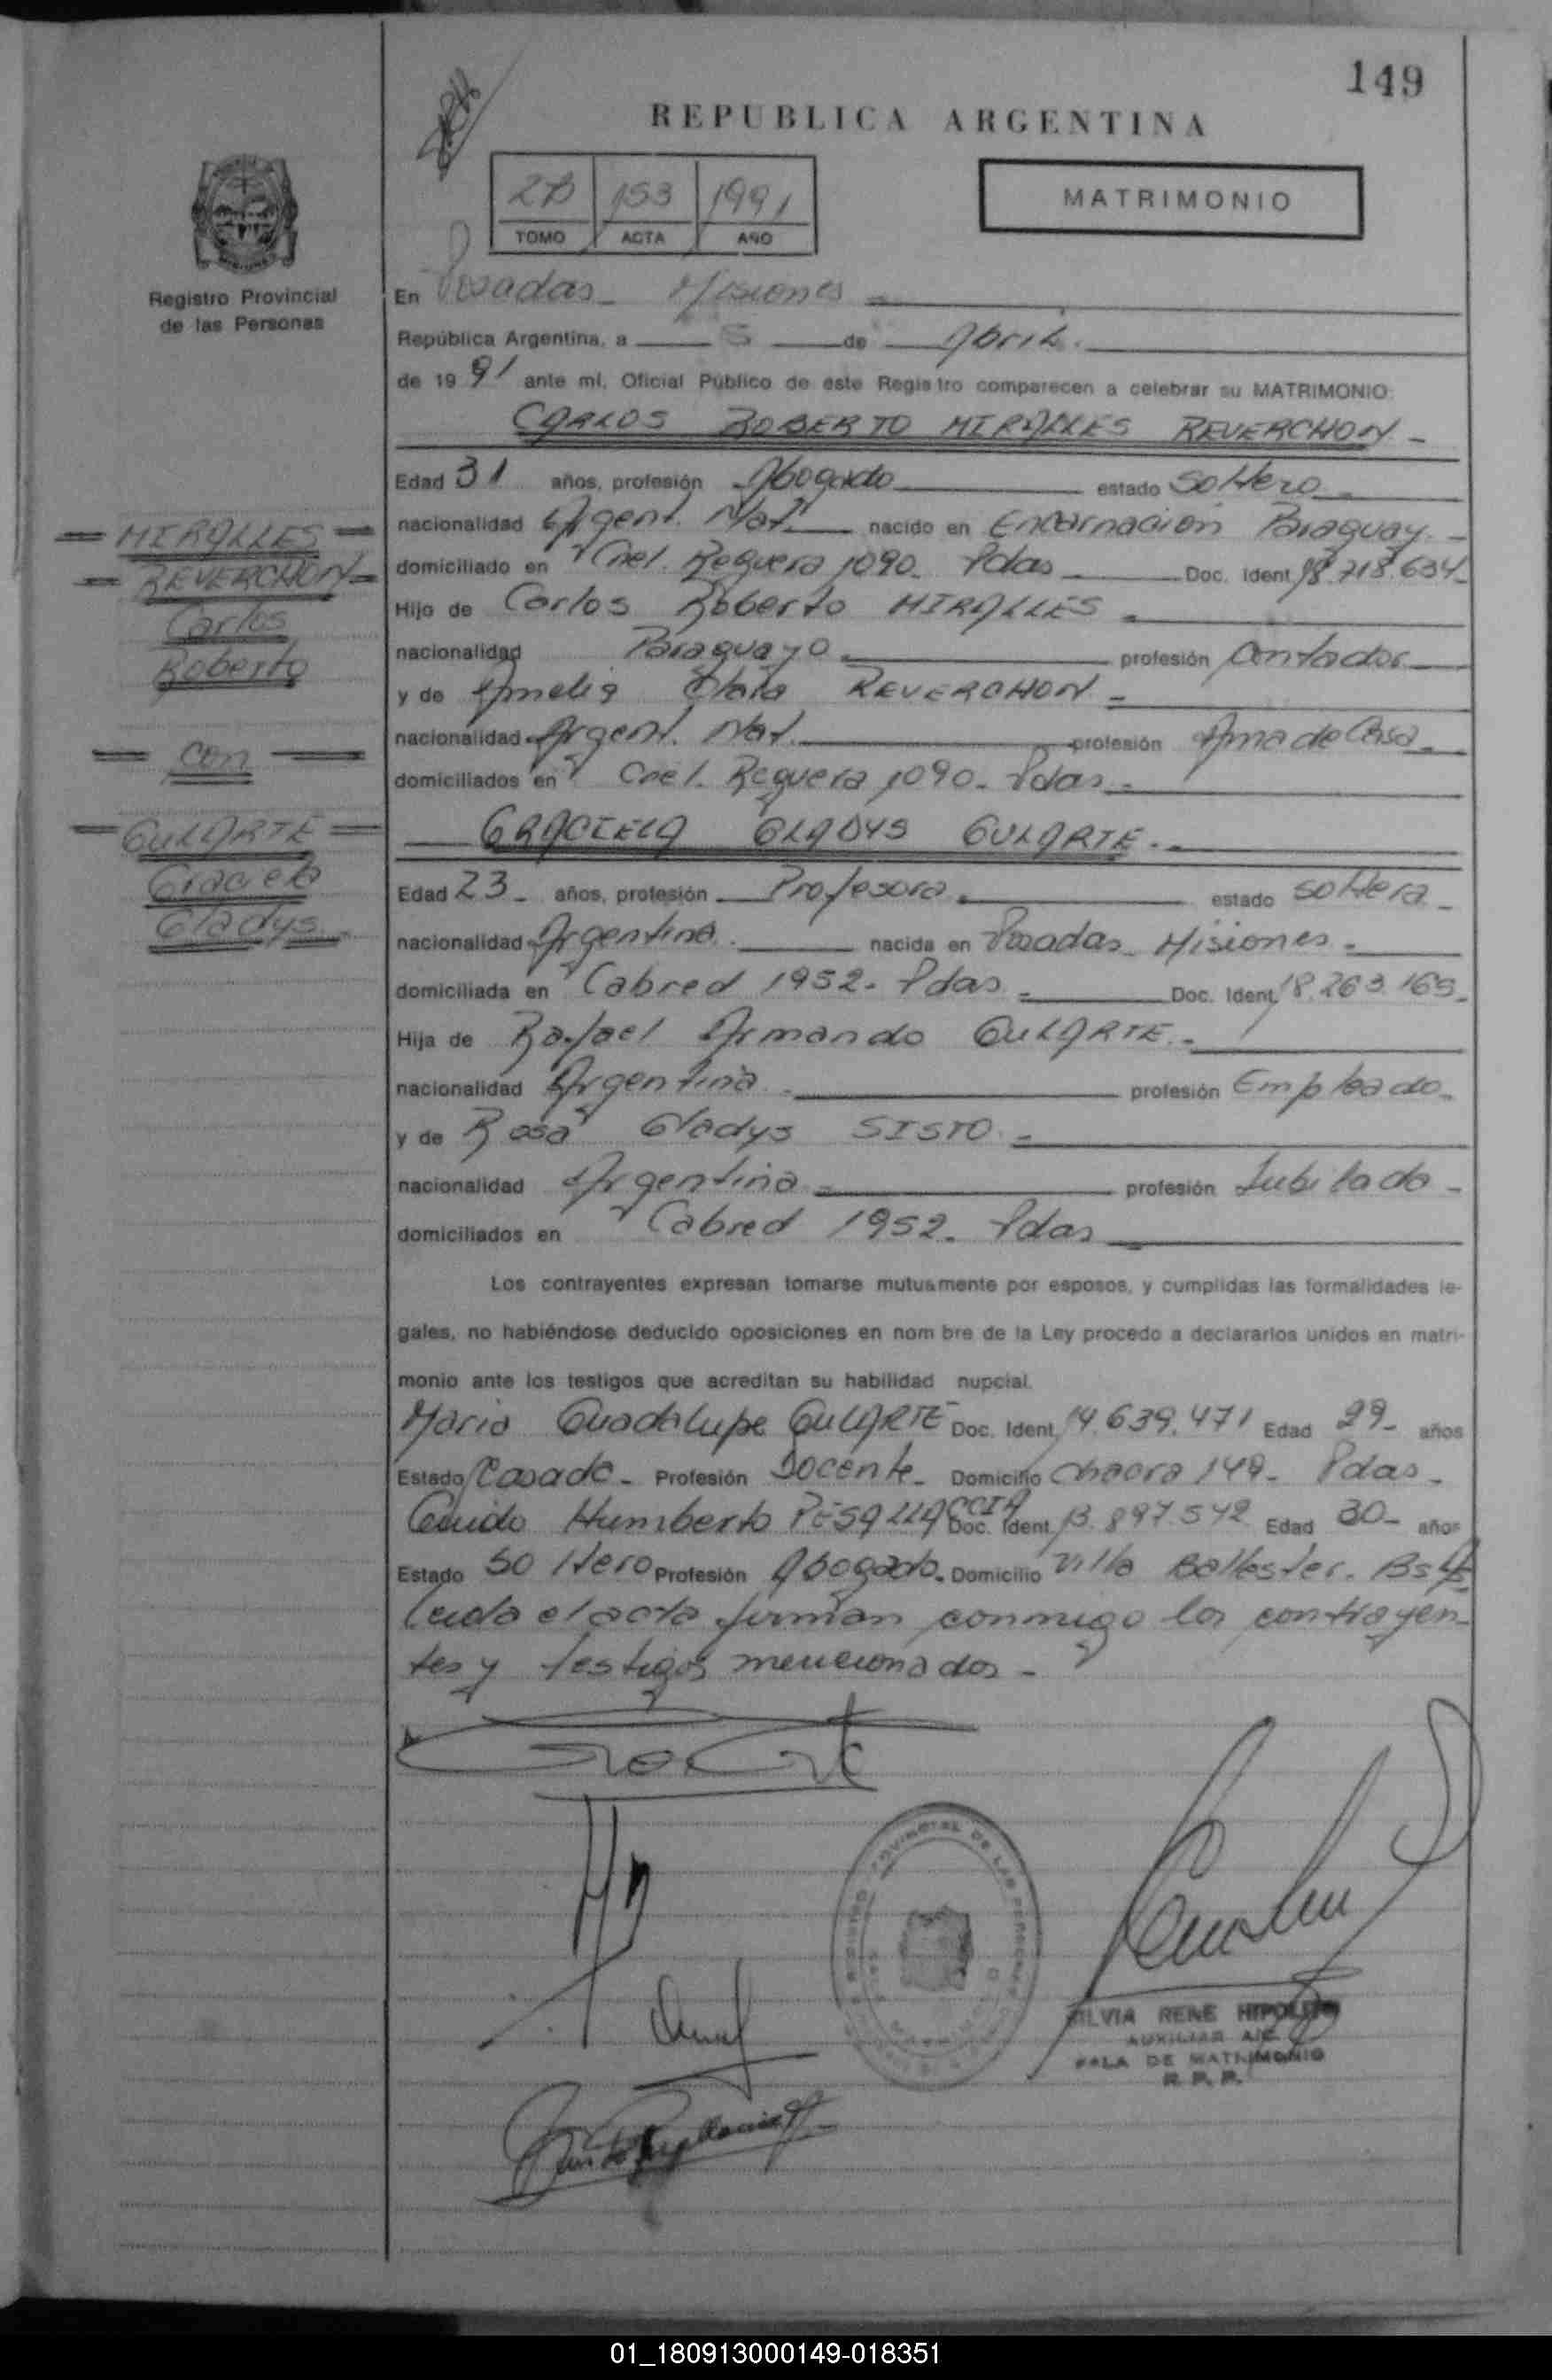 149
REPUBLICA ARGENTINA
MATRIMONIO
153 1991
TOMO ACTA AÑO
Registro Provincial
de las Personas
En Posadas - Misiones
República Argentina, a 5 de Abril.
de 1991 ante mí, Oficial Público de este Registro comparecen a celebrar su MATRIMONIO:
CARLOS ROBERTO MIRALLES REVERCHON -
Edad 31 años, profesión Abogado estado Soltero -
nacionalidad Argent. Nat. nacido en Encarnación Paraguay. -
domiciliado en Cnel. Reguera 1090 - Pdas Doc. Ident. 18.718.634 -
Hijo de Carlos Roberto MIRALLES -
nacionalidad Paraguayo profesión Contador
y de Amelia Clara REVERCHON -
nacionalidad Argent. Nat. profesión Ama de Casa -
domiciliados en Cnel. Reguera 1090 - Pdas -
GRACIELA GLADYS GULARTE. -
Edad 23 - años, profesión Profesora estado soltera -
nacionalidad Argentina. nacida en Posadas - Misiones -
domiciliada en Cabred 1952 - Pdas - Doc. Ident. 18.263.169 -
Hija de Rafael Armando GULARTE. -
nacionalidad Argentina - profesión Empleado -
y de Rosa Gladys SISTO -
nacionalidad Argentina - profesión Jubilada -
domiciliados en Cabred 1952 - Pdas
Los contrayentes expresan tomarse mutuamente por esposos, y cumplidas las formalidades le-
gales, no habiéndose deducido oposiciones en nombre de la Ley procedo a declararlos unidos en matri-
monio ante los testigos que acreditan su habilidad nupcial.
Maria Guadalupe GULARTE Doc. Ident. 14.639.471 Edad 29 - años
Estado Casada - Profesión Docente - Domicilio Chacra 149 - Pdas -
Guido Humberto PESALLACCIA Doc. Ident. 13.897.542 Edad 30 - años
Estado Soltero Profesión Abogado. Domicilio Villa Ballester. Bs As
Leída el acta firman conmigo los contrayen-
tes y testigos mencionados -
= MIRALLES =
= REVERCHON =
Carlos
Roberto
= con =
= GULARTE =
Graciela
Gladys -
SILVIA RENE HIPOLITO
AUXILIAR
SALA DE MATRIMONIO
R. P. P.
01_180913000149-018351